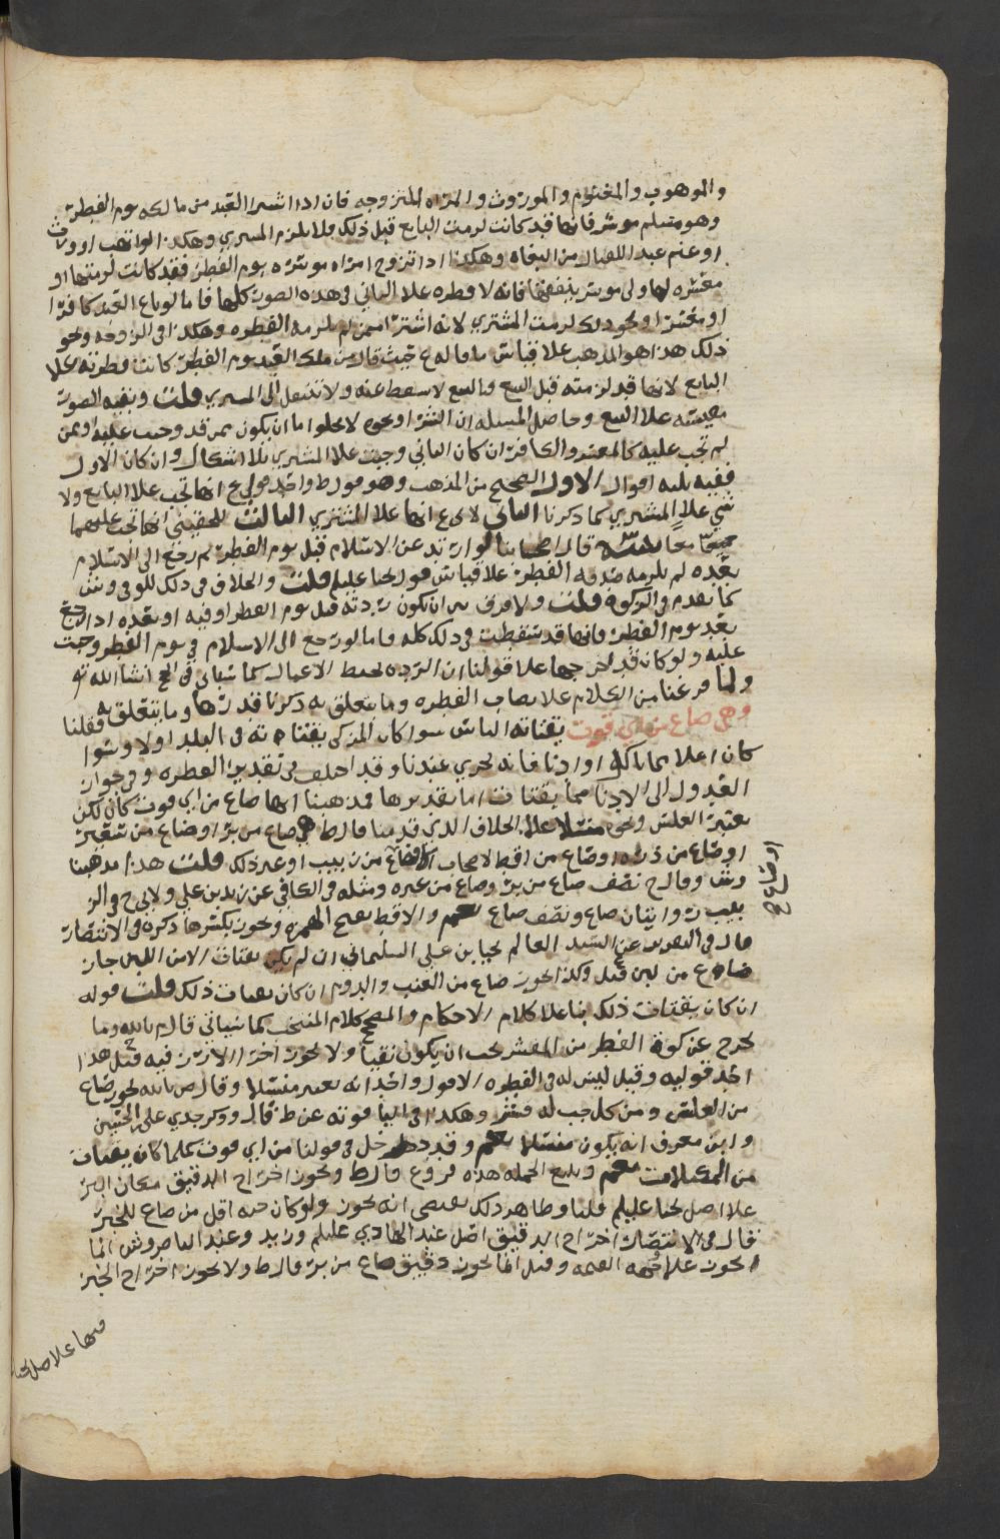 والموهوب والمغنوم والموروث والمراه المتزوجه فان اذا اشترا العبد من مالكه يوم الفطرة
وهو مسلم موسر فانها قد كانت لزمت البايع قبل ذلك فلا يلزم المسري وهكذا الواهب او ورث
او غنم عبدا للقتال من البغاه وهكذا اذا تزوج امراه موسره يوم الفطر فقد كانت لزمتها او
معسره لها ولي موسر ينفقها فانه لا فطره علا الثاني في هذه الصور كلها فاما لو باع العبد كافرا
او معسرا ونحو ذلك لزمت المشتري لانه اشترا ممن لم يلزمه الفطره وهكذا في الزوجه ونحو
ذلك هذا هو المذهب علا قياس ما قاله ع حيث قال من ملك العبد يوم الفطر كانت فطرته علا
البايع لانها قد لزمته قبل البيع والبيع لا يسقط عنه ولا تنتقل الى المسري قلت وبقيه الصور
مقيسه علا البيع وحاصل المسله ان الشرا ونحوه لا يخلوا اما ان يكون ممن قد وجبت عليه او ممن
لم تجب عليه كالمعسر والكافر ان كان الثاني وجبت علا المشتري بلا اشكال وان كان الاول
ففيه ثلثه اقوال الاول الصحيح من المذهب وهو قول ط واحد قولي ع انها تجب علا البايع ولا
شي علا المشتري كما ذكرنا الثاني لا ع انها علا المشتري الثالث للحقيني انها تجب عليهما
جميعا معا قال اصحابنا لو ارتد عن الاسلام قبل يوم الفطر ثم رجع الى الاسلام
بعده لم يلزمه صدقه الفطر علا قياس قول يحيا عليلم قلت والخلاف في ذلك للوفي وش
كما تقدم في الزكوه قلت ولا فرق بين ان يكون ردته قبل يوم الفطر او فيه او بعده اذا رجع
بعد يوم الفطر فانها قد سقطت في ذلك كله فاما لو رجع الى الاسلام في يوم الفطر وجبت
عليه ولو كان قد اخرجها علا قولنا ان الرده تحبط الاعمال كما سياتي في الحج انشا الله تع
ولما فرغنا من الكلام علا نصاب الفطره وما يتعلق به ذكرنا قدرها وما يتعلق به فقلنا
وهي صاع من اي قوت يقتاته الناس سوا كان المزكي يقتاته في البلد او لا وسوا
كان اعلا مما ياكل او ادنا فانه يجزي عندنا وقد اختلف في تقدير الفطره وفي جواز
العدول الى الادنا مما يقتات اما تقديرها فمذهبنا انها صاع من اي قوت كان لكن
يعتبر العلس ونحوه منسلا علا الخلاف الذي قدمنا قال ط هي صاع من بر او صاع من شعير
او صاع من ذره او صاع من اقط لاصحاب الاقط او صاع من زبيب او غير ذلك قلت هذا مذهبنا
وش وقال ح نصف صاع من بر وصاع من غيره ومثله في الكافي عن زيد بن علي ولابي ح في الز
بيب روايتان صاع ونصف صاع نعم والاقط بفتح الهمزه ويجوز بكسرها ذكره في الانتصار
قال في التقرير عن السيد العالم يحيا بن علي السليماني ان لم يكن يقتات الا من اللبن جاز
صاع من لبن وكذا يجوز صاع من العنب والدوم ان كان يقتات ذلك قلت قوله
ان كان يقتات ذلك بنا علا كلام الاحكام والمصحح كلام المنتخب كما سياتي قال م بالله وما
يخرج عن كوة الفطر من المعشر يجب ان يكون نقيا ولا يجوز اخراج الارز فيه قيل هذا
احد قوليه وقيل ليس له في الفطره الا قول واحد انه يعتبر منسلا وقال ص بالله يجوز صاع
من العلس ومن كل حب له قشر وهكذا في الياقوته عن ط قال وذكر جدي علي بن الحسين
وابن معرف انه يكون منسلا نعم وقد دخل في قولنا من اي قوت كلما كان يقتات
من المكيلات نعم ويتبع الجمله هذه فروع قال ط ويجوز اخراج الدقيق مكان البر
علا اصل يحيا عليلم قلنا وظاهر ذلك يقتضي انه يجوز ولو كان حبه اقل من صاع للخبر
قال في الانتصار اخراج الدقيق اصل عند الهادي عليلم وزيد وعند الناصر وش انما
يجوز علا جهه القيمه وقيل انما يجوز دقيق صاع من بر قال ط ولا يجوز اخراج الخبز
فيها علا اصل يحيا